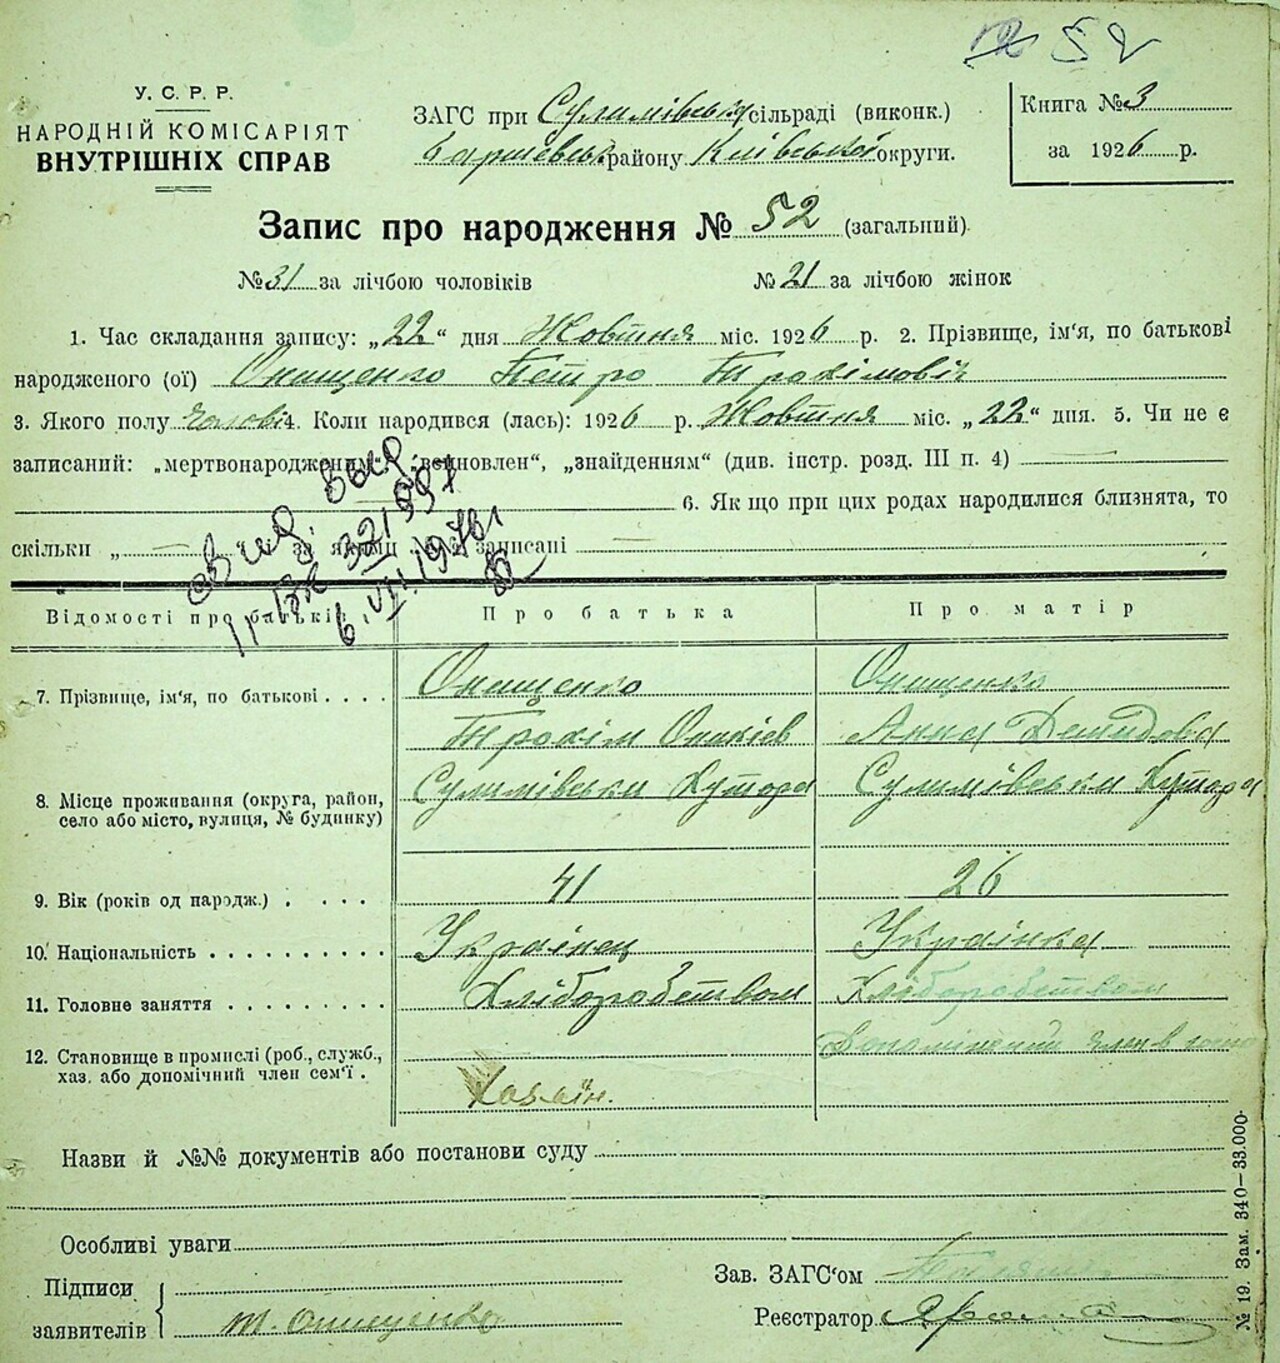 52
У. С. Р. Р.
НАРОДНІЙ КОМІСАРІЯТ
ВНУТРІШНІХ СПРАВ
ЗАГС при Сулимівській сільраді (виконк.)
району Київської округи.
Книга № 3
за 1926 р.
Запис про народження № 52 (загальний)
№ 31 за лічбою чоловіків
№ 21 за лічбою жінок
1. Час складання запису: „22“ дня Жовтня міс. 1926 р. 2. Прізвище, ім‘я, по батькові
народженого (ої) Онищенко Петро Трохімовіч
3. Якого полу чолові 4. Коли народився (лась): 1926 р. Жовтня міс. „22“ дня. 5. Чи не є
записаний: „мертвонародженим“, „знайденням“ (див. інстр. розд. III п. 4)
6. Як що при цих родах народилися близнята, то
скільки „ “ і за якими №№ записані
6. VI. 1976
Відомості про батьків
Про батька
Про матір
7. Прізвище, ім‘я, по батькові . . . .
Онищенко
Трохім
Онищенко
Анна Демидовна
8. Місце проживання (округа, район,
село або місто, вулиця, № будинку)
Сулимівськи Хутора
Сулимівськи Хутора
9. Вік (років од народж.) . . . .
41
26
10. Національність . . . . . . . . . .
Українец
Українка
11. Головне заняття . . . . . . . . .
Хліборобством
Хліборобством
12. Становище в промислі (роб., служб.,
хаз. або допомічний член сем‘ї .
Хазяїн.
член
Назви й №№ документів або постанови суду
Особливі уваги
Підписи
заявителів
Т. Онищенко
Зав. ЗАГС‘ом
Реєстратор
№ 19. Зам. 340—33.000